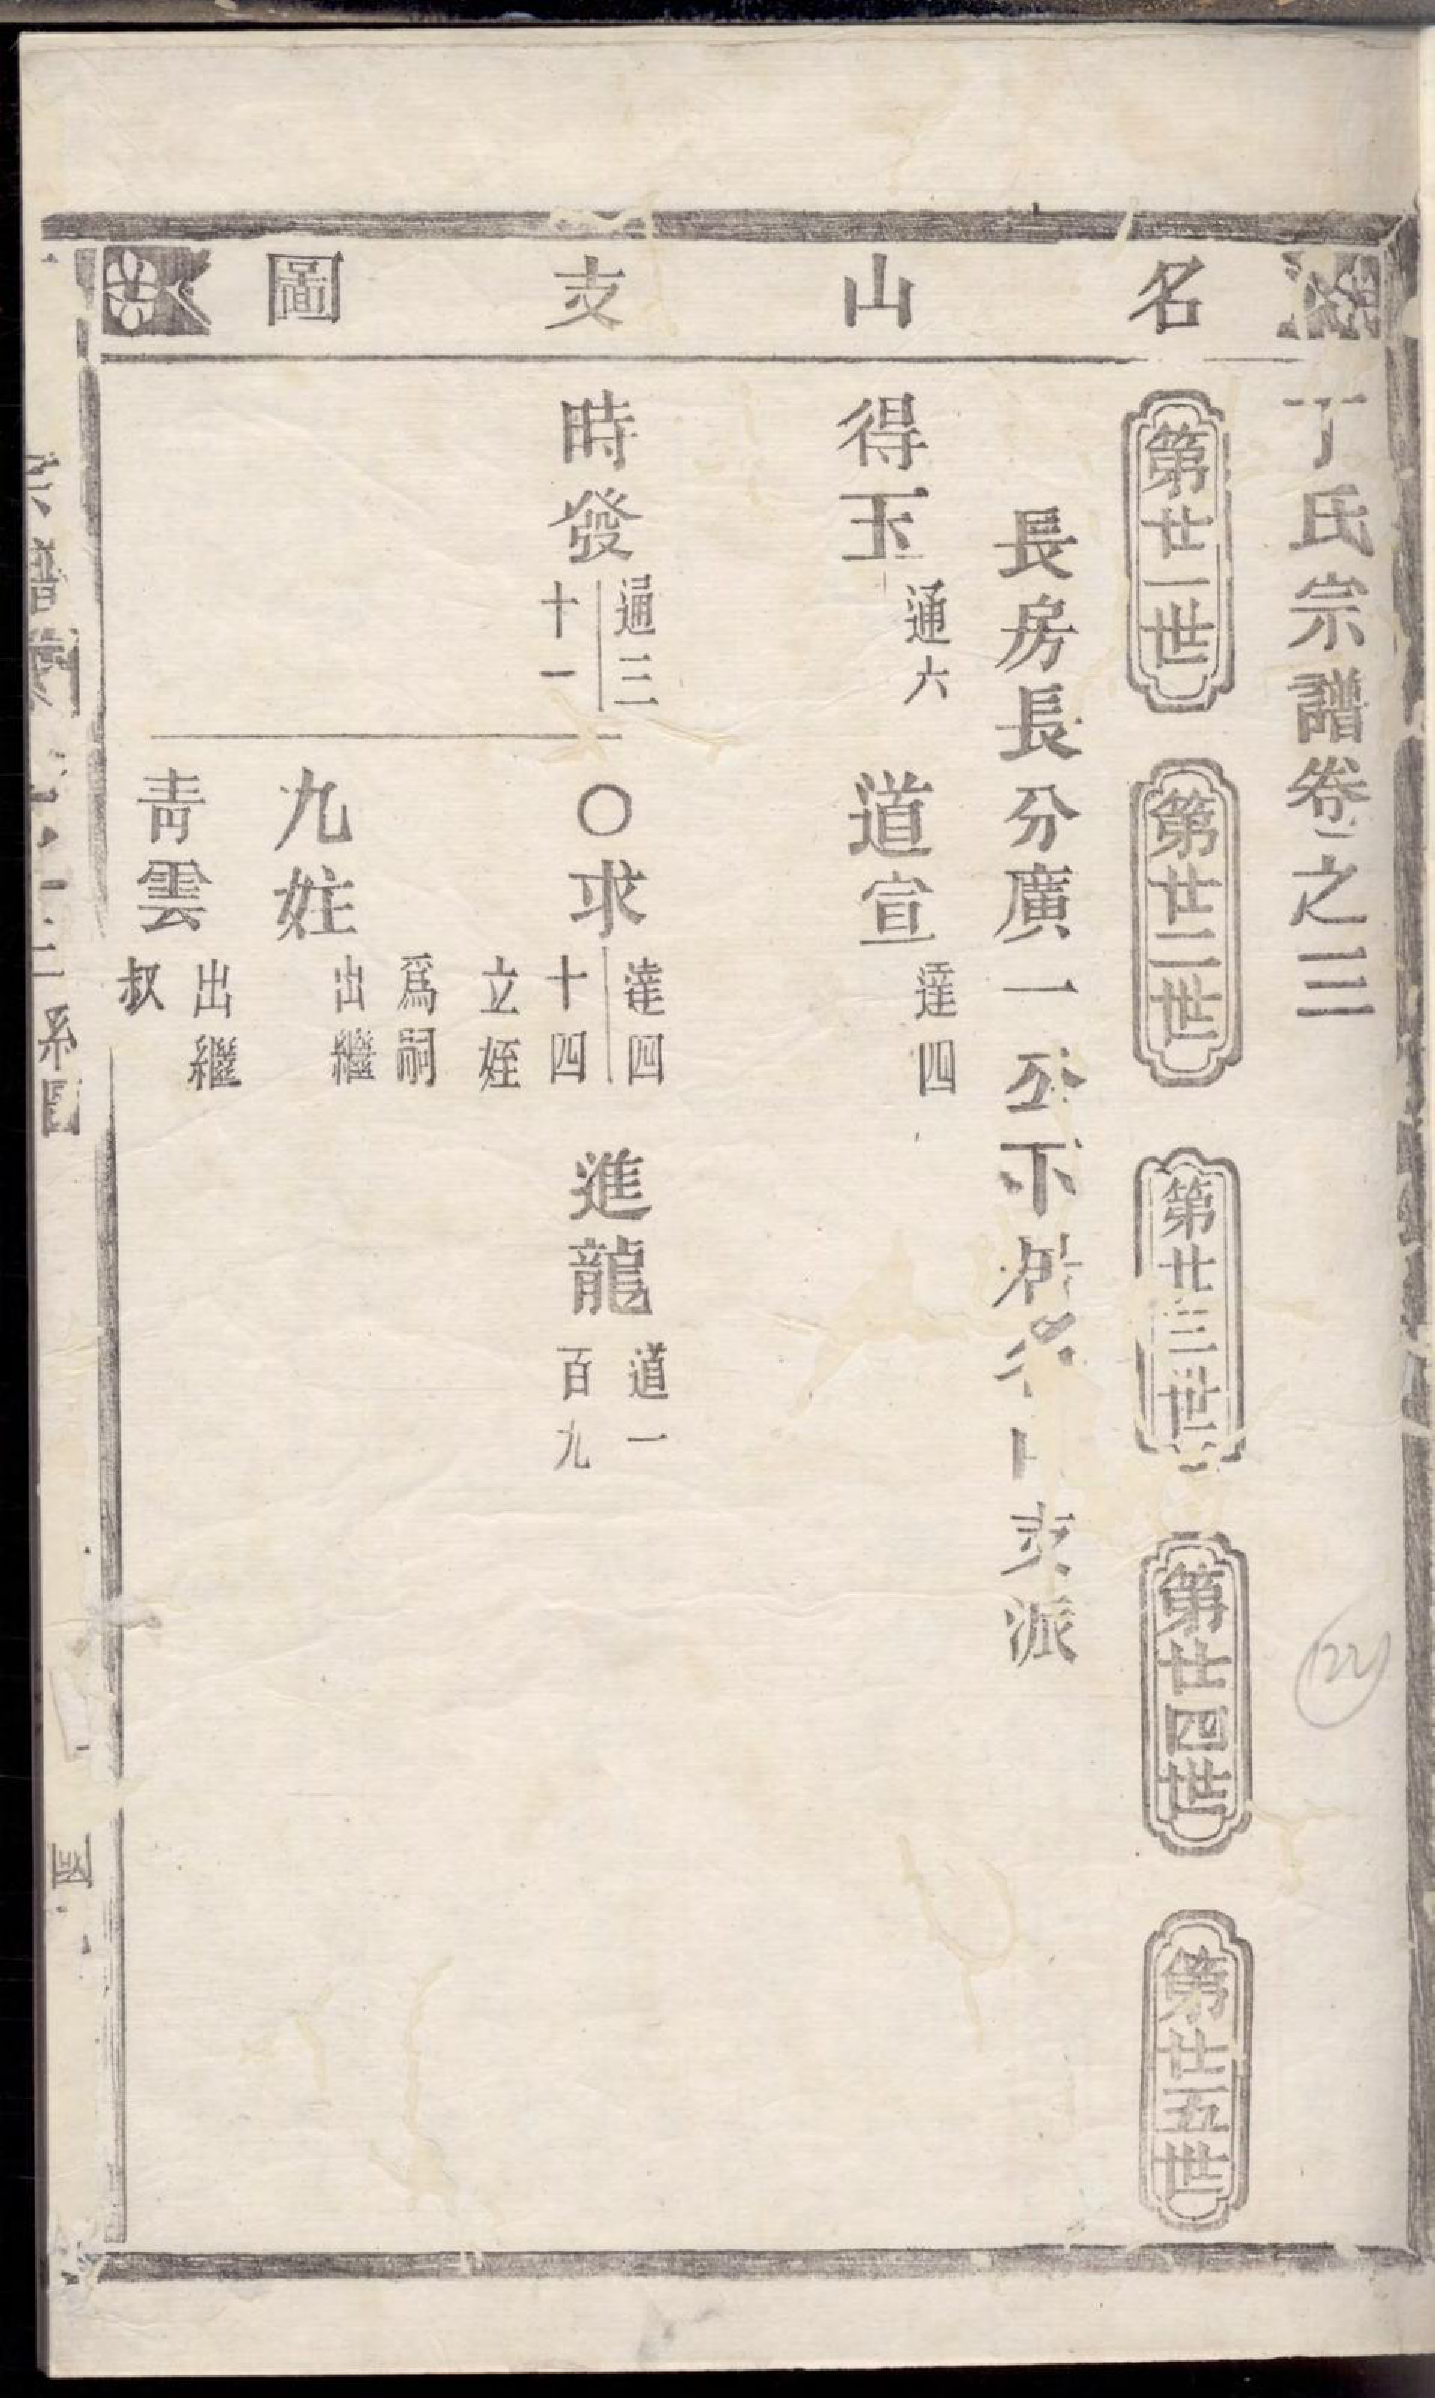 名山支圖
丁氏宗譜卷之三
第廿一世
第廿二世
第廿三世
第廿四世
第廿五世
長房長分廣一公下居名山支派
得玉
通六
道宣
達四
時發
通三
十一
〇求
達四
十四
立姪
爲祠
進龍
道一
百九
九姓
出繼
青雲
出繼
叔
宗譜
系圖